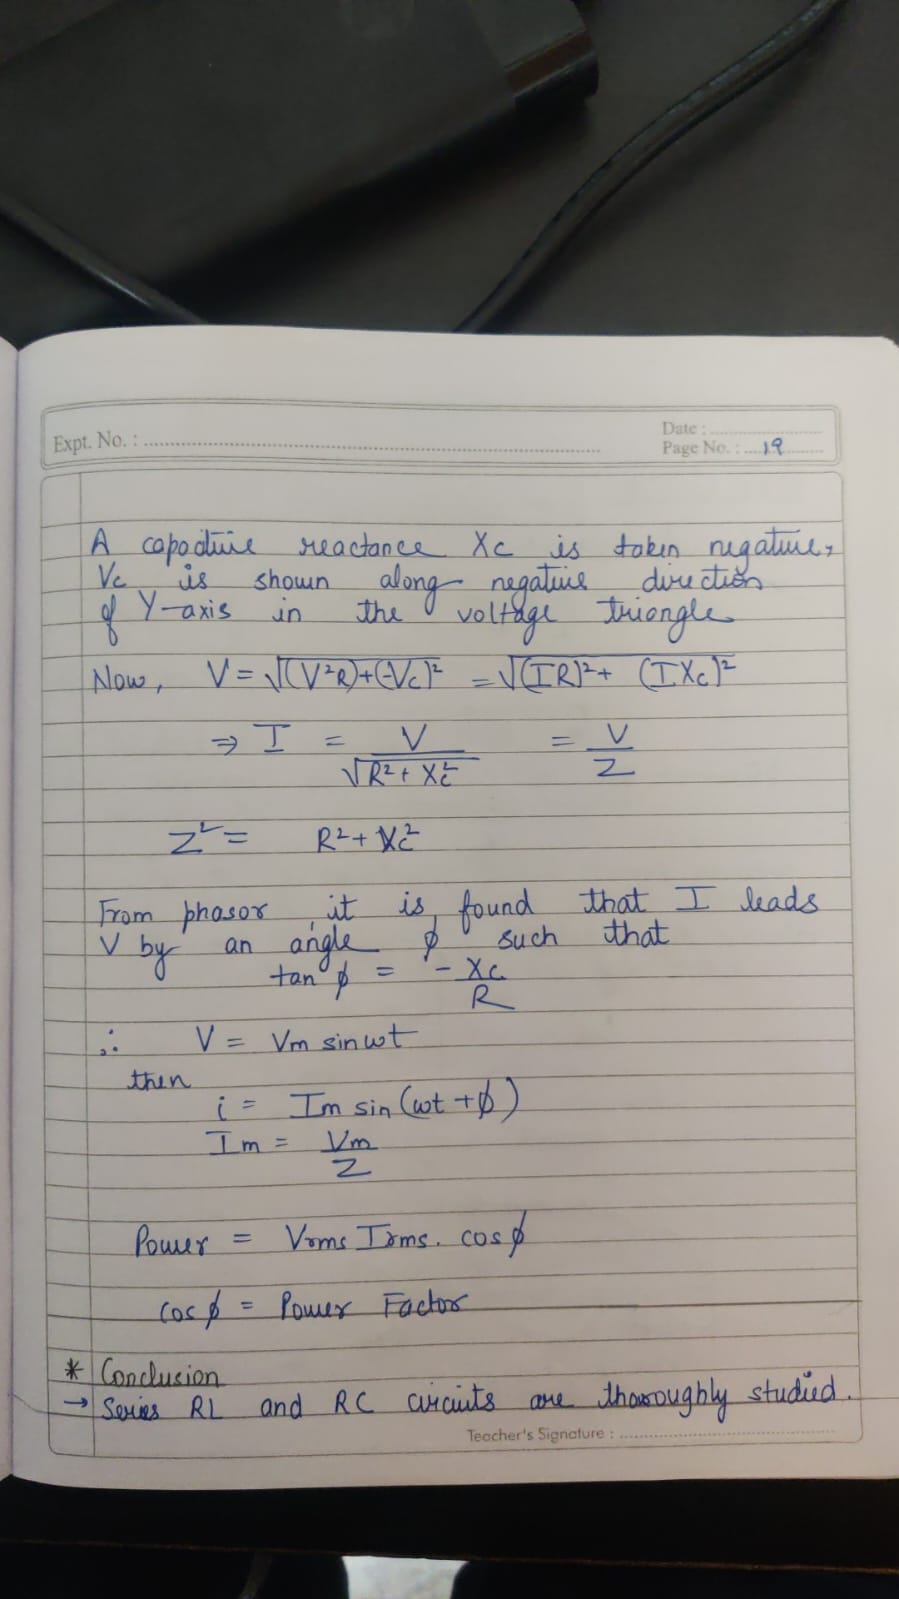 Expt. No. :
Date :
Page No. : 19
A capacitive reactance Xc is taken negative,
Vc is shown along negative direction
of Y-axis in the voltage triangle
Now, V = √(V²R)+(-Vc)² = √(IR)²+ (IXc)²
⇒ I = V/√R²+Xc² = V/Z
Z² = R²+Xc²
From phasor, it is found that I leads
V by an angle ϕ such that
tan ϕ = -Xc/R
∴ V = Vm sin wt
then
i = Im sin (wt + ϕ)
Im = Vm/Z
Power = Vrms Irms. cos ϕ
cos ϕ = Power Factor
* Conclusion
→ Series RL and RC circuits are thoroughly studied.
Teacher's Signature :